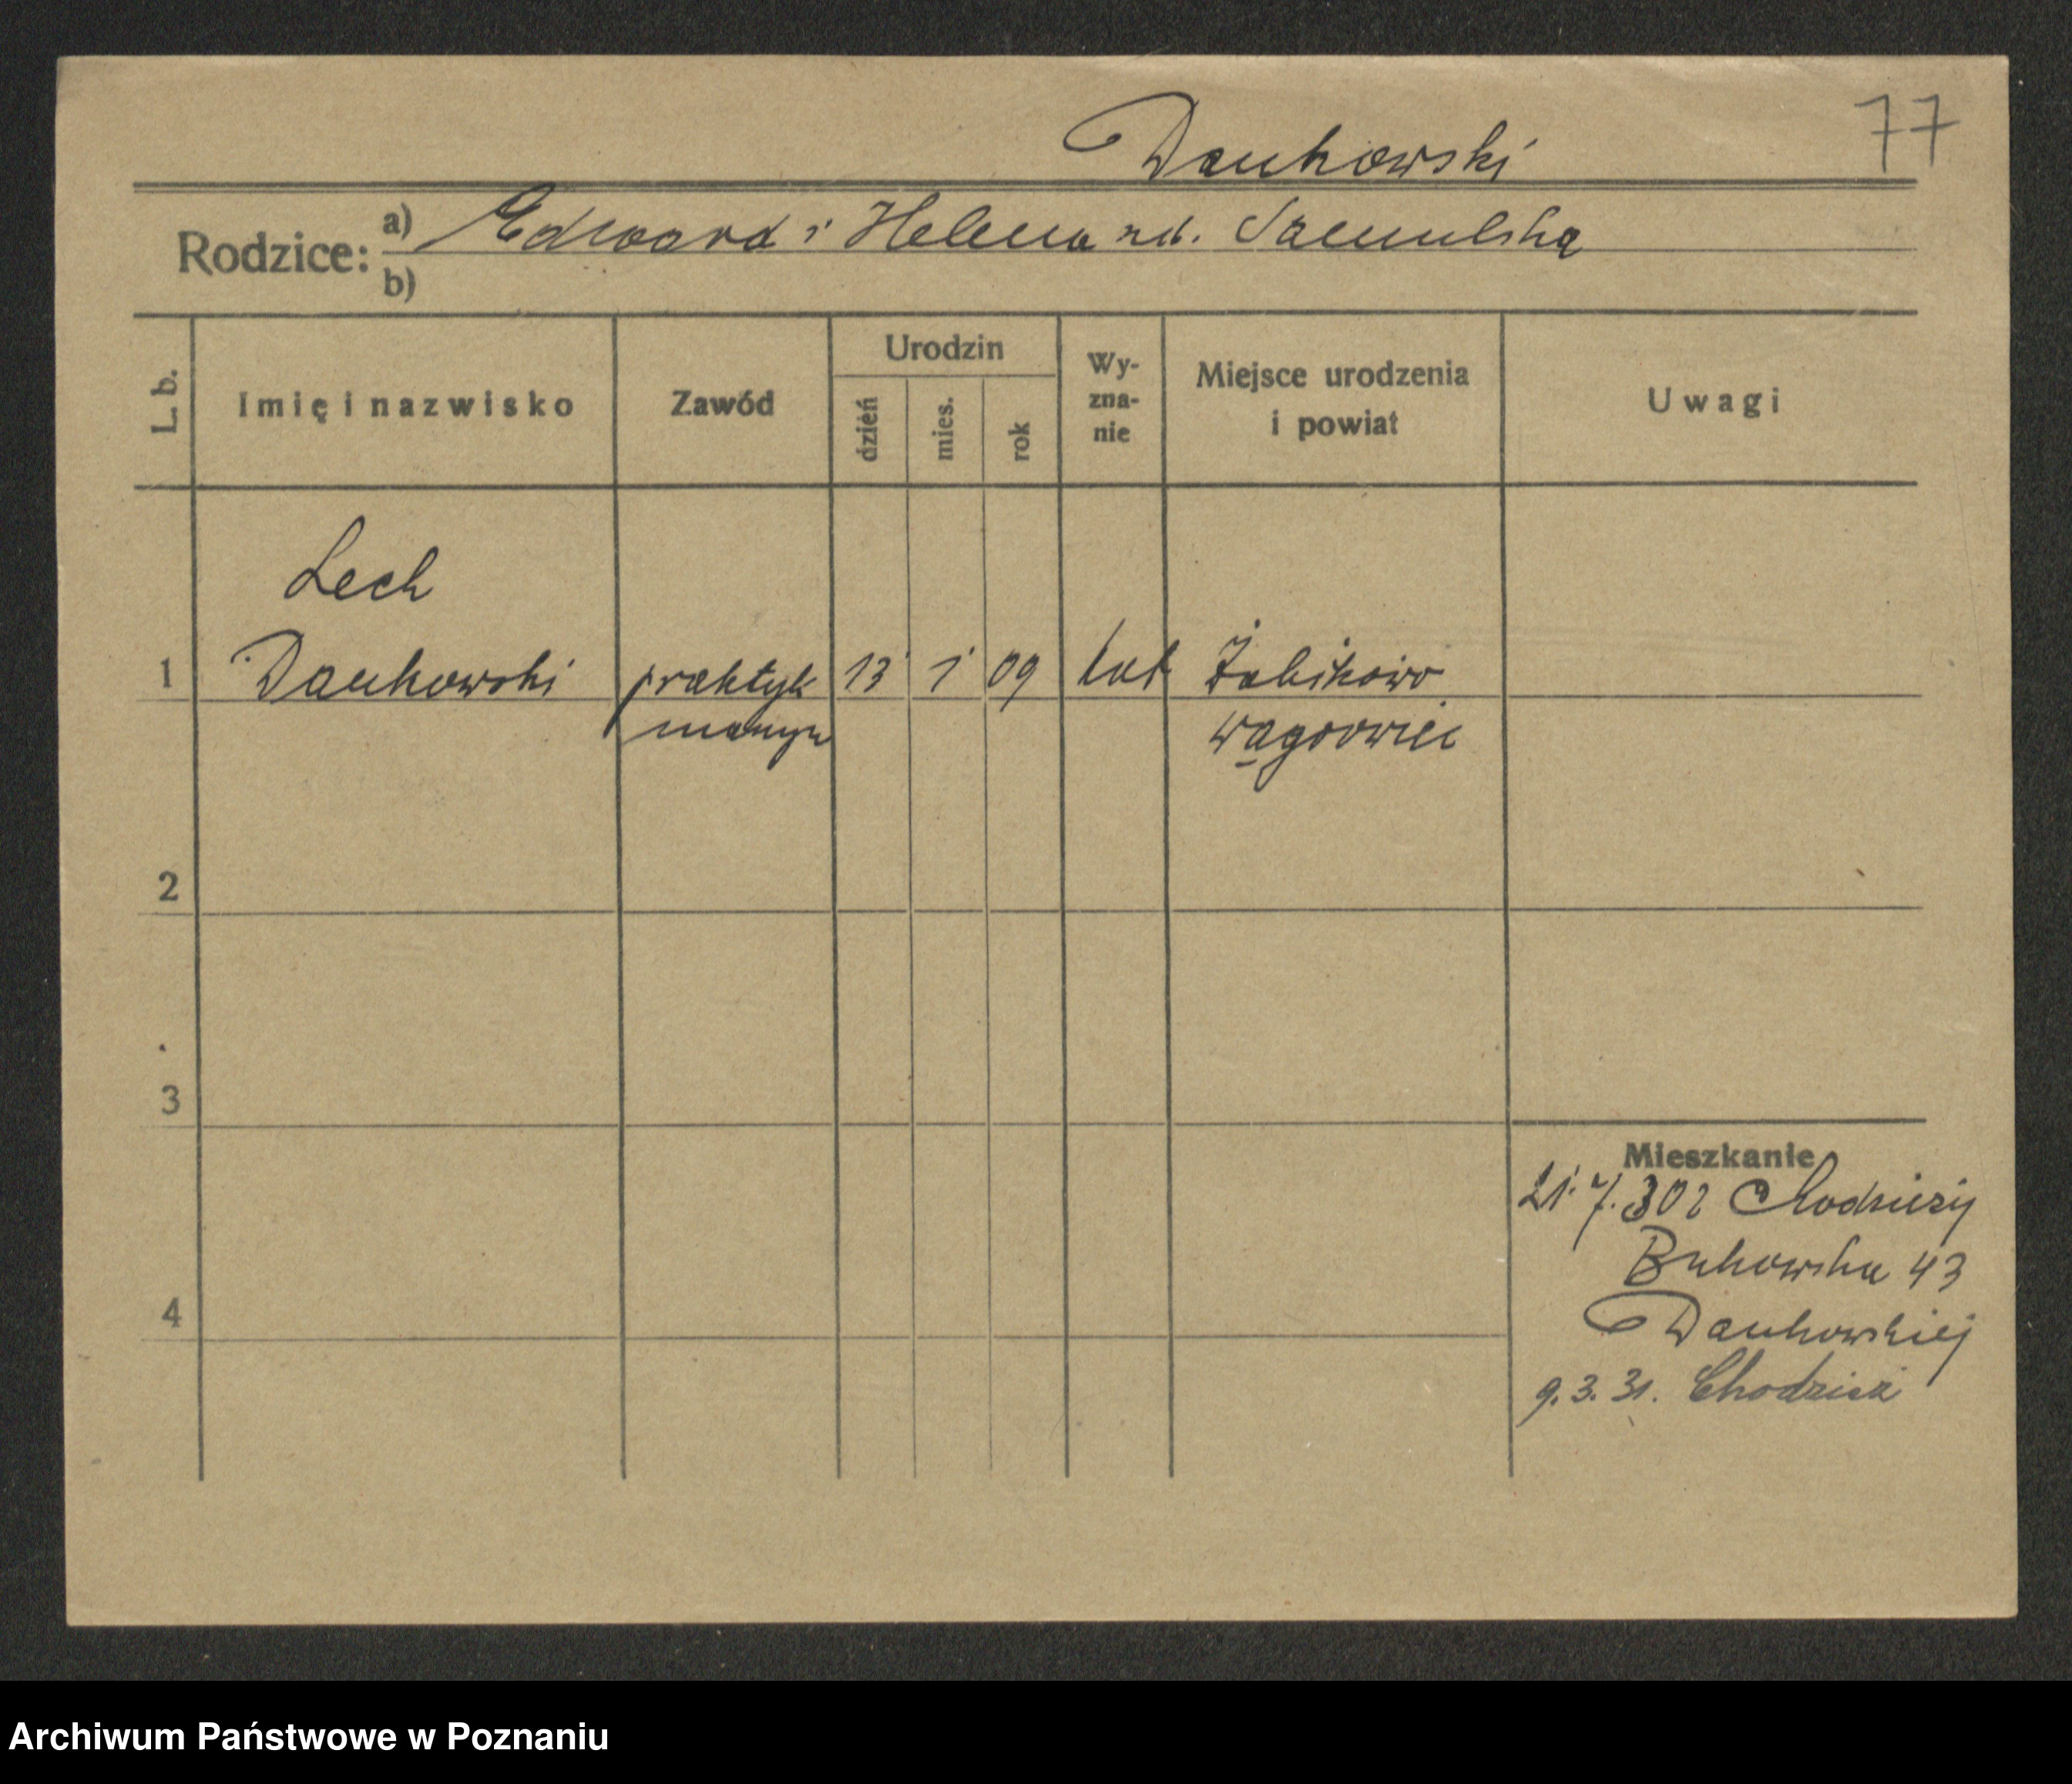 77
Dankowski
Rodzice: a) Edward i Helena zd. Szemulska
b)
L. b.
Imię i nazwisko
Zawód
Urodzin
dzień
mies.
rok
Wy-
zna-
nie
Miejsce urodzenia
i powiat
Uwagi
Lech
1 Dankowski praktyk 13 1 09 kat Żabikowo
wągrowiec
2
3
4
Mieszkanie
21. 7. 30 z Chodzieży
Bukowska 43
Dankowskiej
9. 3. 31. Chodzież
Archiwum Państwowe w Poznaniu